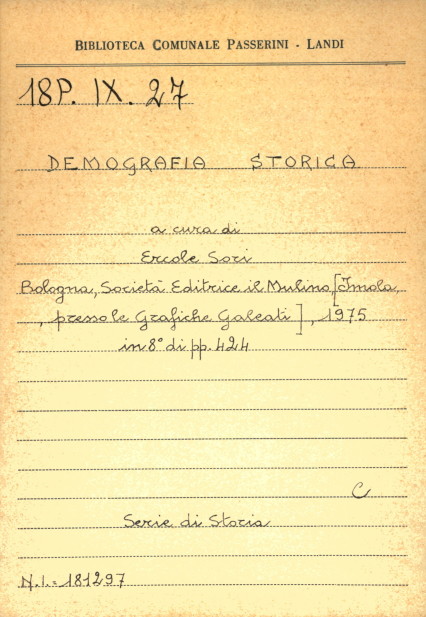 BIBLIOTECA COMUNALE PASSERINI - LANDI
18P. IX. 27
DEMOGRAFIA STORICA
a cura di
Ercole Sori
Bologna, Società Editrice il Mulino [Imola,
, presso le Grafiche Galeati] , 1975
in 8° di pp. 424
C
Serie di Storia
N.I.= 181297